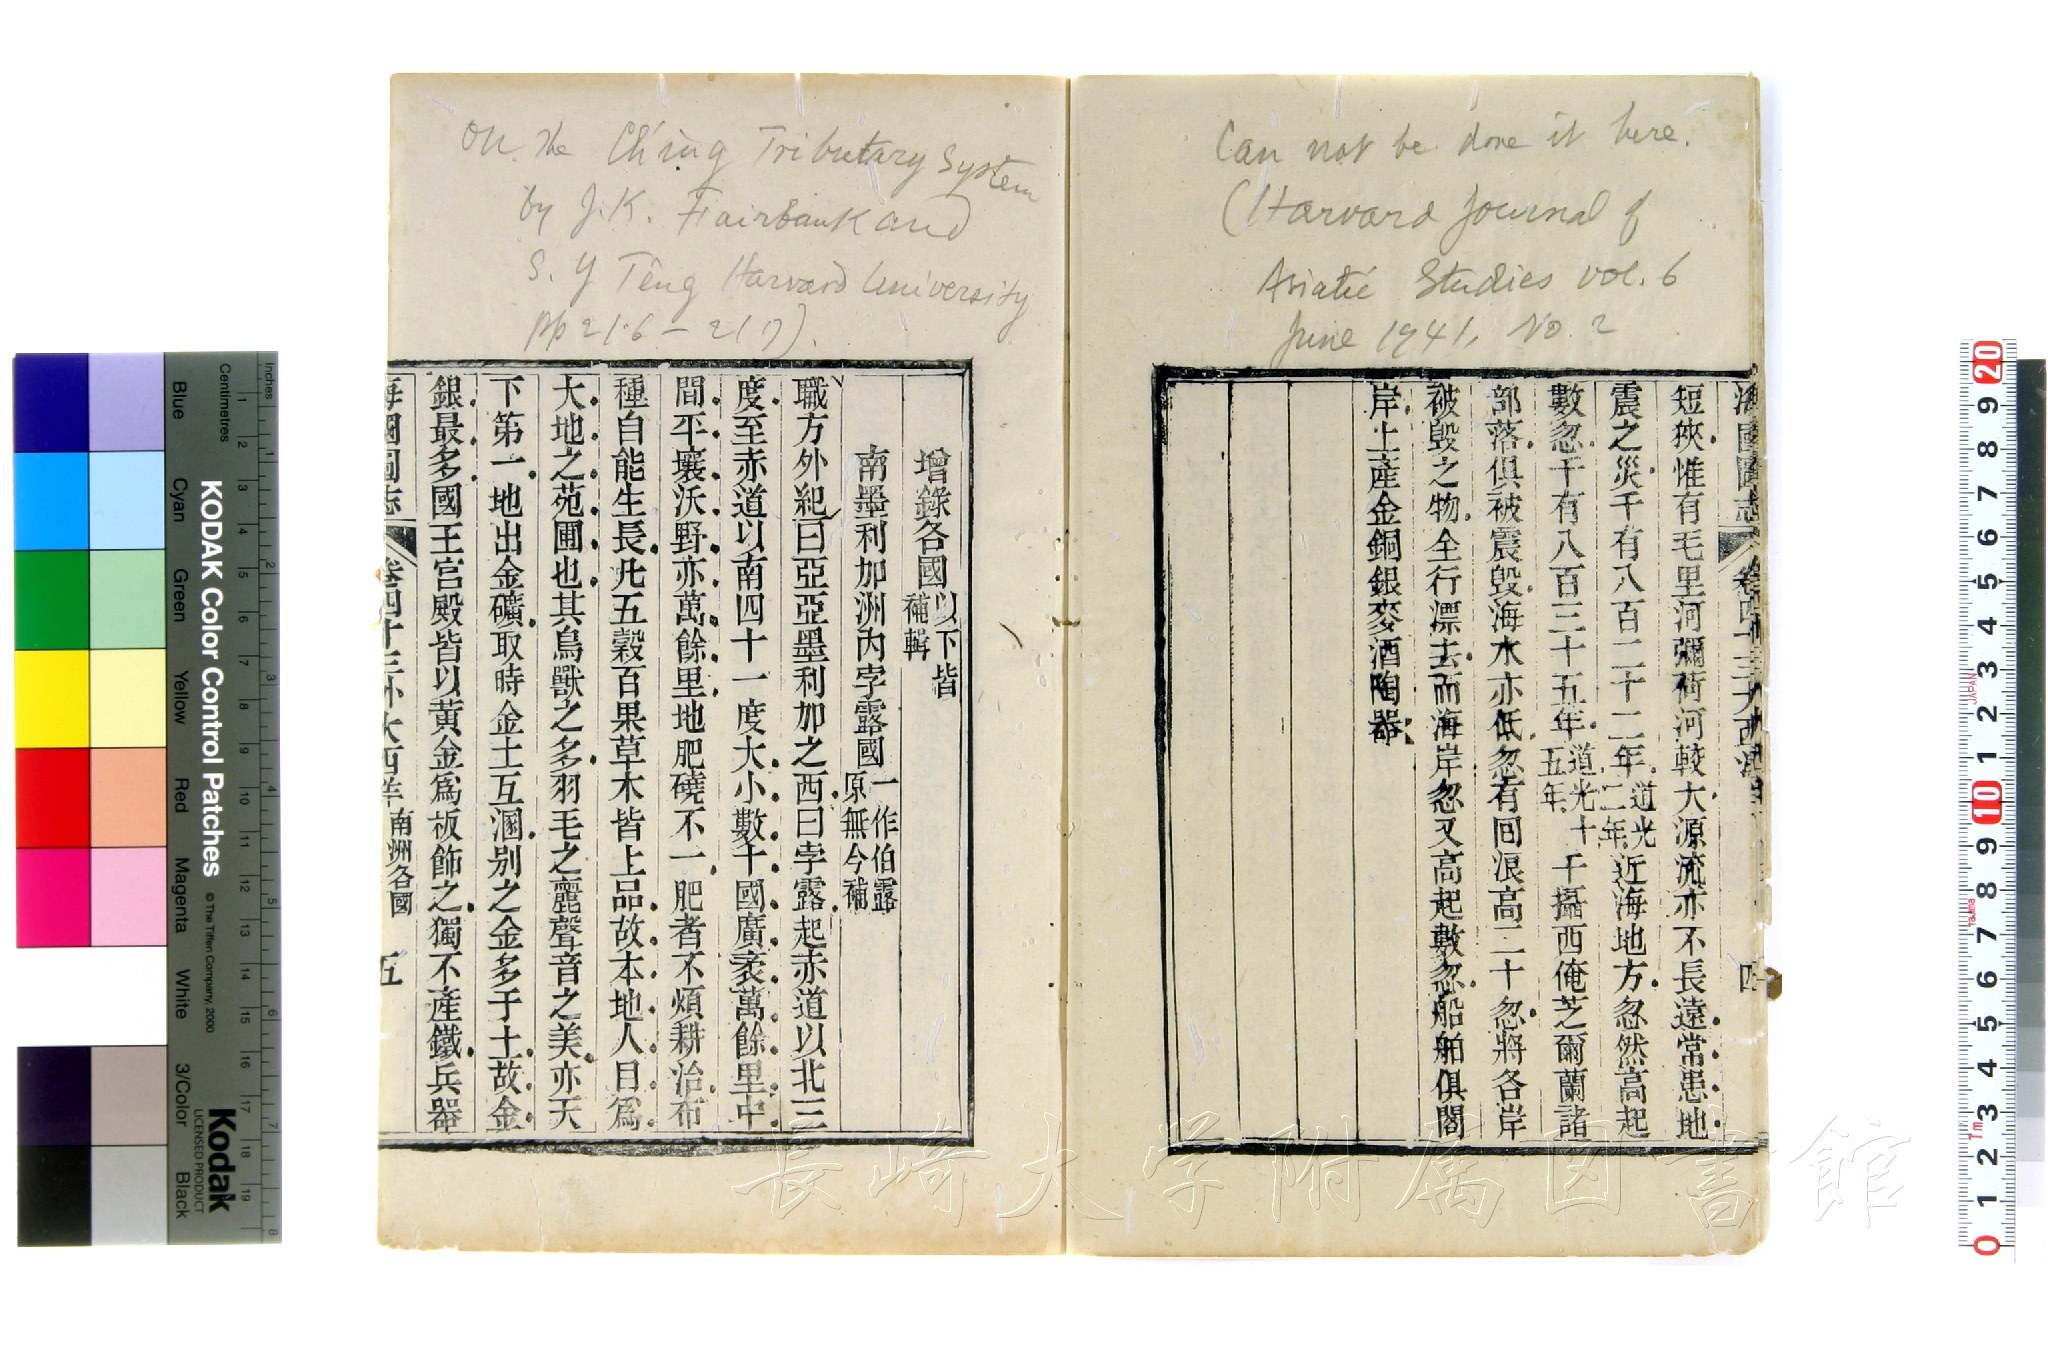 Can not be done it here.
(Harvard Journal of
Asiatic Studies vol. 6
June 1941, No. 2
海國圖志 卷四十三 大西洋 四
短狹惟有毛里河彌荷河較大源流亦不長遠常患地
震之災千有八百二十二年道光二年近海地方忽然高起
數忽千有八百三十五年道光十五年干攝西俺芝爾蘭諸
部落俱被震毁海水亦低忽有囘浪高二十忽將各岸
被毁之物全行漂去而海岸忽又高起數忽船舶俱閣
岸土產金銅銀麥酒陶器
On the Ch'ing Tributary System
by J.K. Fairbank and
S. Y Têng Harvard University
pp 216-217).
增錄各國以下皆補輯
南墨利加洲內孛露國一作伯露原無今補
職方外紀曰亞亞墨利加之西曰孛露起赤道以北三
度至赤道以南四十一度大小數十國廣袤萬餘里中
間平壤沃野亦萬餘里地肥磽不一肥者不煩耕治布
種自能生長凡五穀百果草木皆上品故本地人目爲
大地之苑圃也其鳥獸之多羽毛之麗聲音之美亦天
下第一地出金礦取時金土互溷别之金多于土故金
銀最多國王宮殿皆以黃金爲板飾之獨不產鐵兵器
海國圖志 卷四十三 外大西洋 南洲各國 五
Inches
Centimetres
KODAK Color Control Patches
© The Tiffen Company, 2000
Kodak
LICENSED PRODUCT
Blue
Cyan
Green
Yellow
Red
Magenta
White
3/Color
Black
1 2 3 4 5 6 7 8
1 2 3 4 5 6 7 8 9 10 11 12 13 14 15 16 17 18 19
20 9 8 7 6 5 4 3 2 1 10 9 8 7 6 5 4 3 2 1 0
JAPAN
長崎大学附属図書館